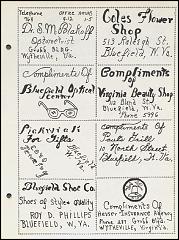 Telephone
Office Hours
Dr. S. M. Blakoff
Optometrist
Gross Bldg.
Wytheville, Va.
Coles Flower
Shop
513 Raleigh St.
Bluefield, W. Va.
Compliments Of
Bluefield Optical
Center
Compliments
of
Virginia Beauty Shop
Bland St.
Bluefield, W. Va.
Phone 5996
Pickwick's
For Gifts
Bluefield
W. Va.
Compliments Of
Pauls Grill
10 North Street
Bluefield, W. Va.
Bluefield Shoe Co.
Shoes of Style + Quality
ROY D. PHILLIPS
BLUEFIELD, W. VA.
Compliments Of
Heuser Insurance Agency
Phone 227 Gross Bldg.
WYTHEVILLE, Virginia.